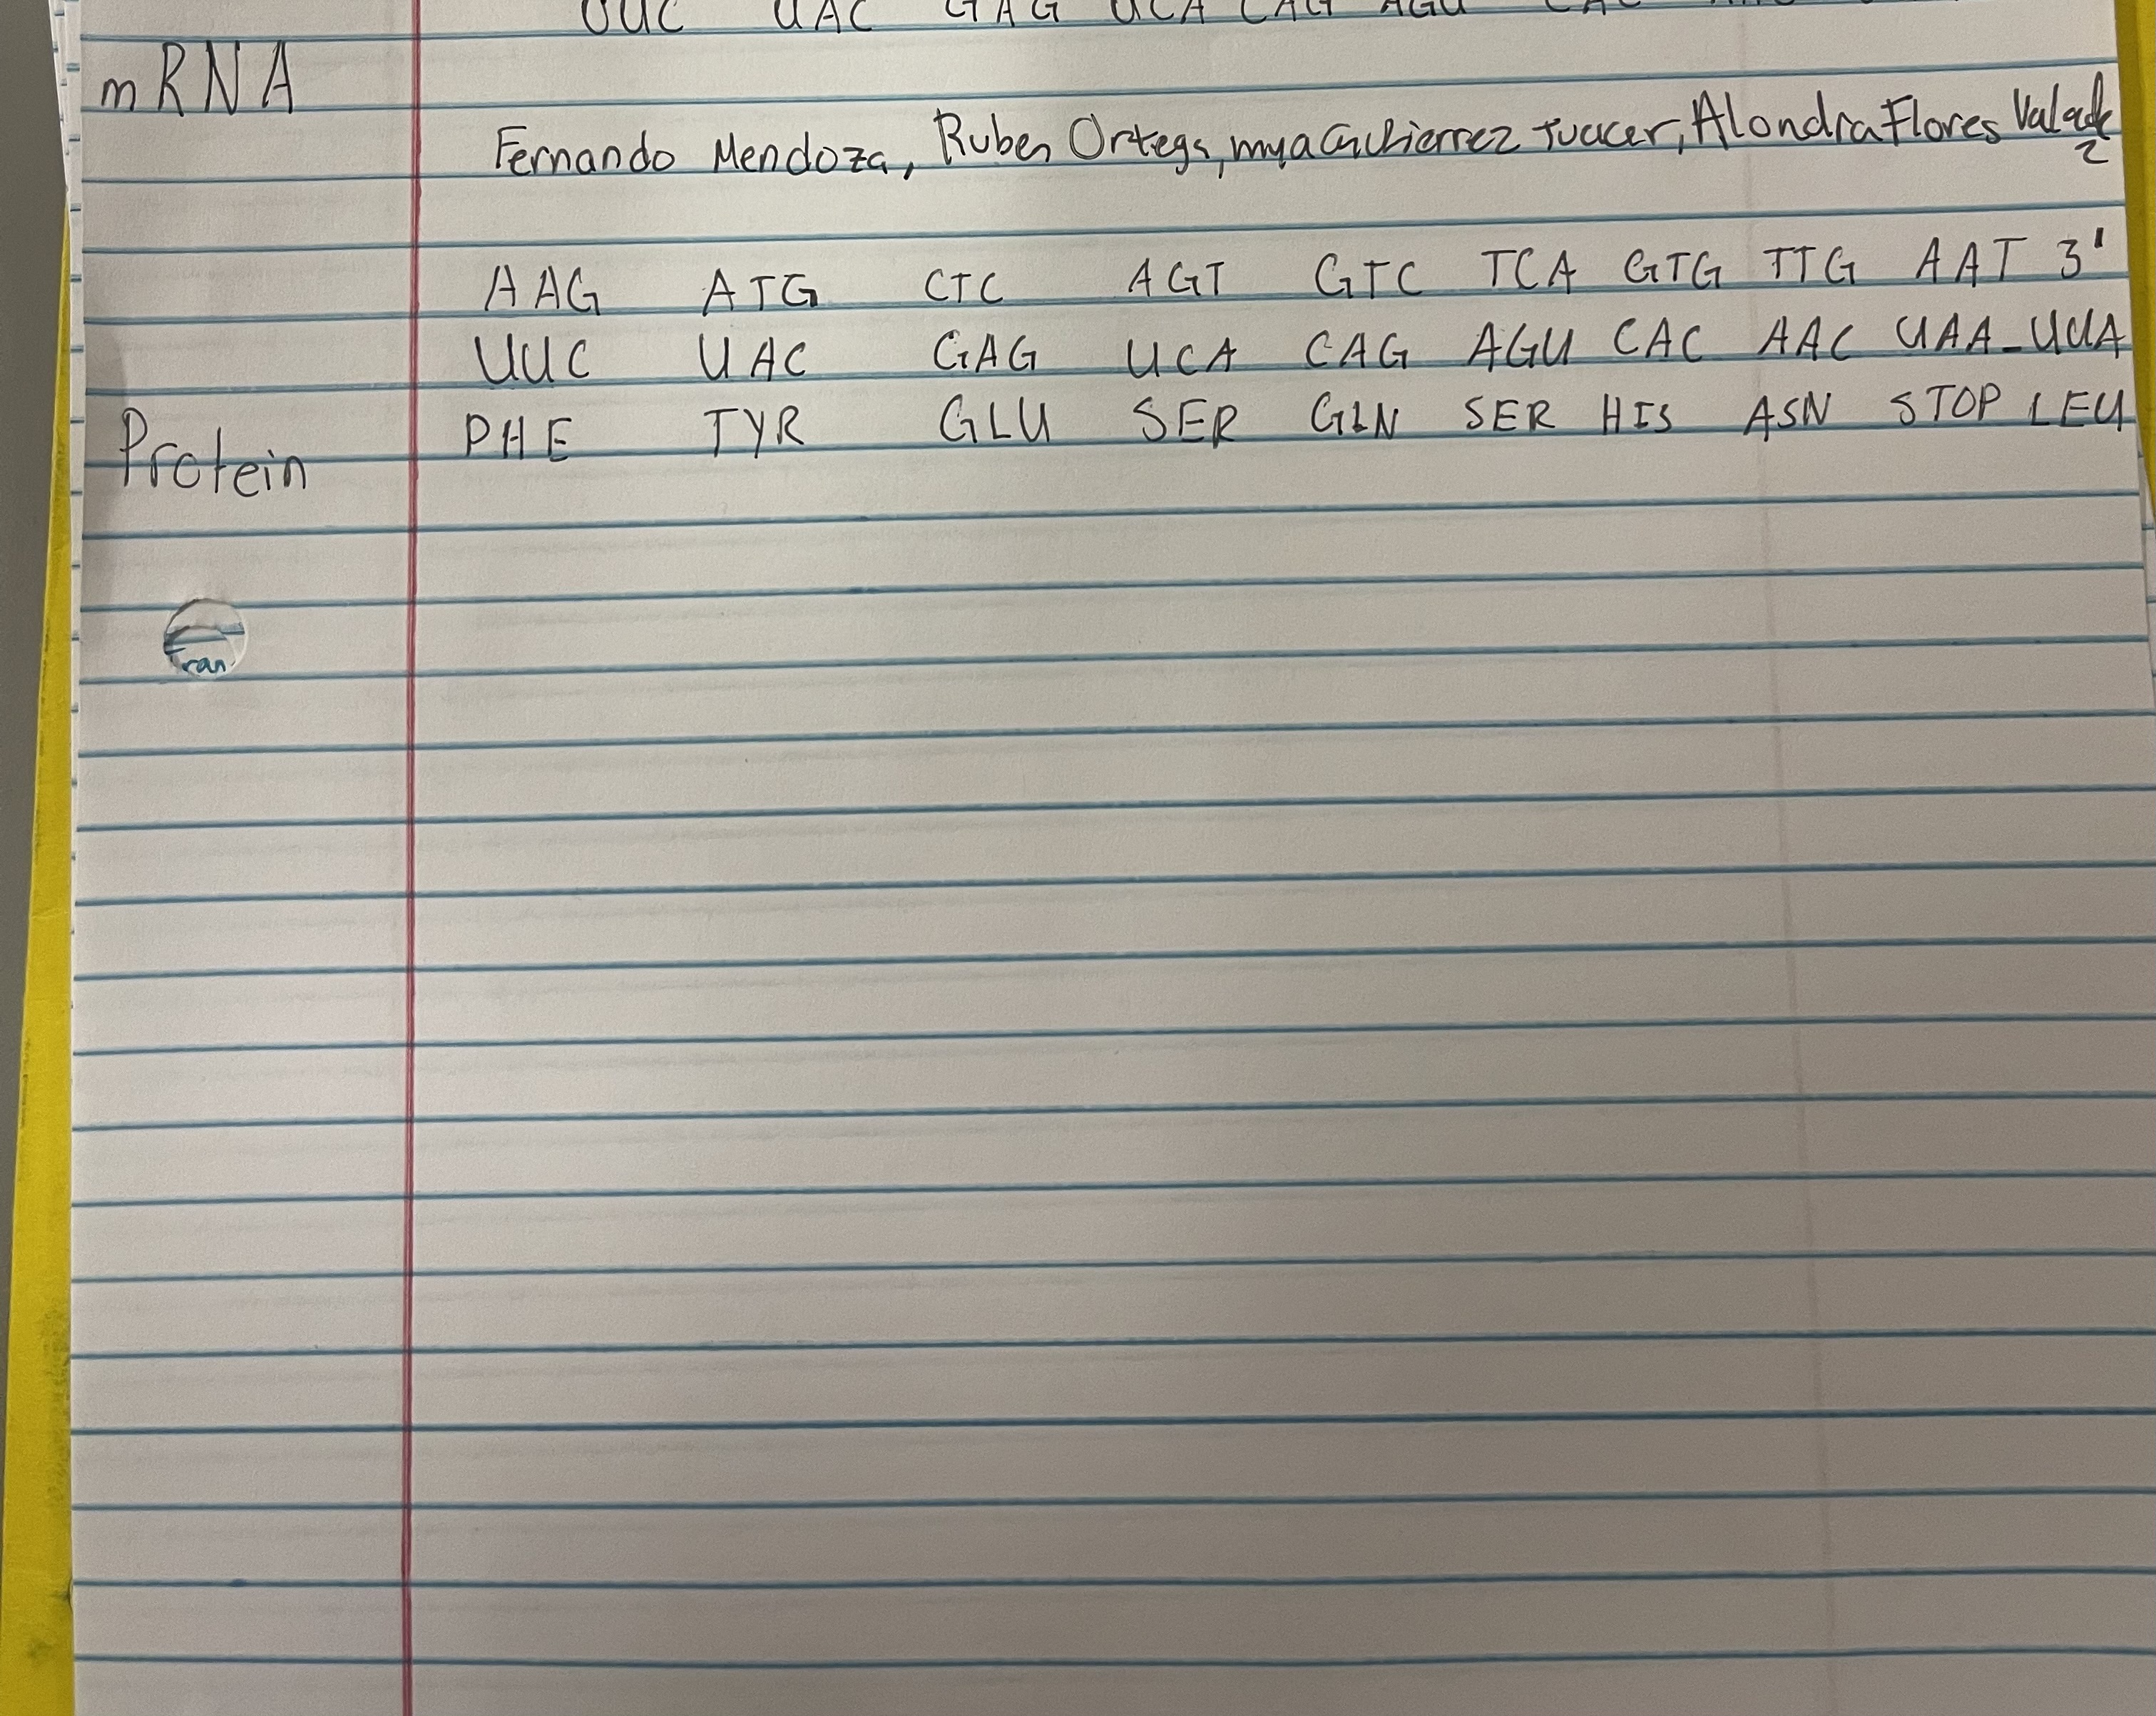 UUC UAC GAG UCA CAG AGU CAC
mRNA
Fernando Mendoza, Ruben Ortega, mya Gutierrez Tuccer, Alondra Flores Valadez
AAG ATG CTC AGT GTC TCA GTG TTG AAT 3'
UUC UAC GAG UCA CAG AGU CAC AAC UAA-UUA
PHE TYR GLU SER GLN SER HIS ASN STOP LEU
Protein